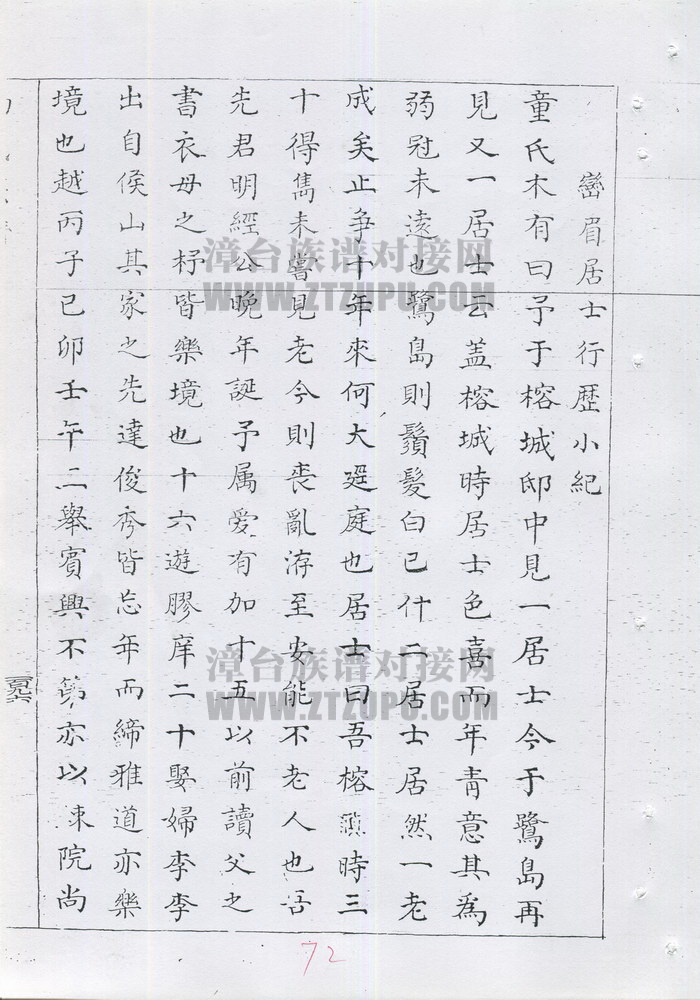 巒眉居士行歷小紀
童氏木有曰予于榕城邸中見一居士今于鷺島再
見又一居士云盖榕城時居士色喜而年青意其為
弱冠未遠也鷺島則鬚髮白已什二居士居然一老
成矣止爭十年來何大逕庭也居士曰吾榕城時三
十得雋未嘗見老今則喪亂洊至安能不老人也吾
先君明經公晚年誕予属爱有加十五以前讀父之
書衣母之杼皆樂境也十六遊膠庠二十娶婦李李
出自侯山其家之先達俊秀皆忘年而締雅道亦樂
境也越丙子己卯壬午二舉賓興不第亦以束院尚
三百九六
漳台族谱对接网
WWW.ZTZUPU.COM
漳台族谱对接网
WWW.ZTZUPU.COM
72